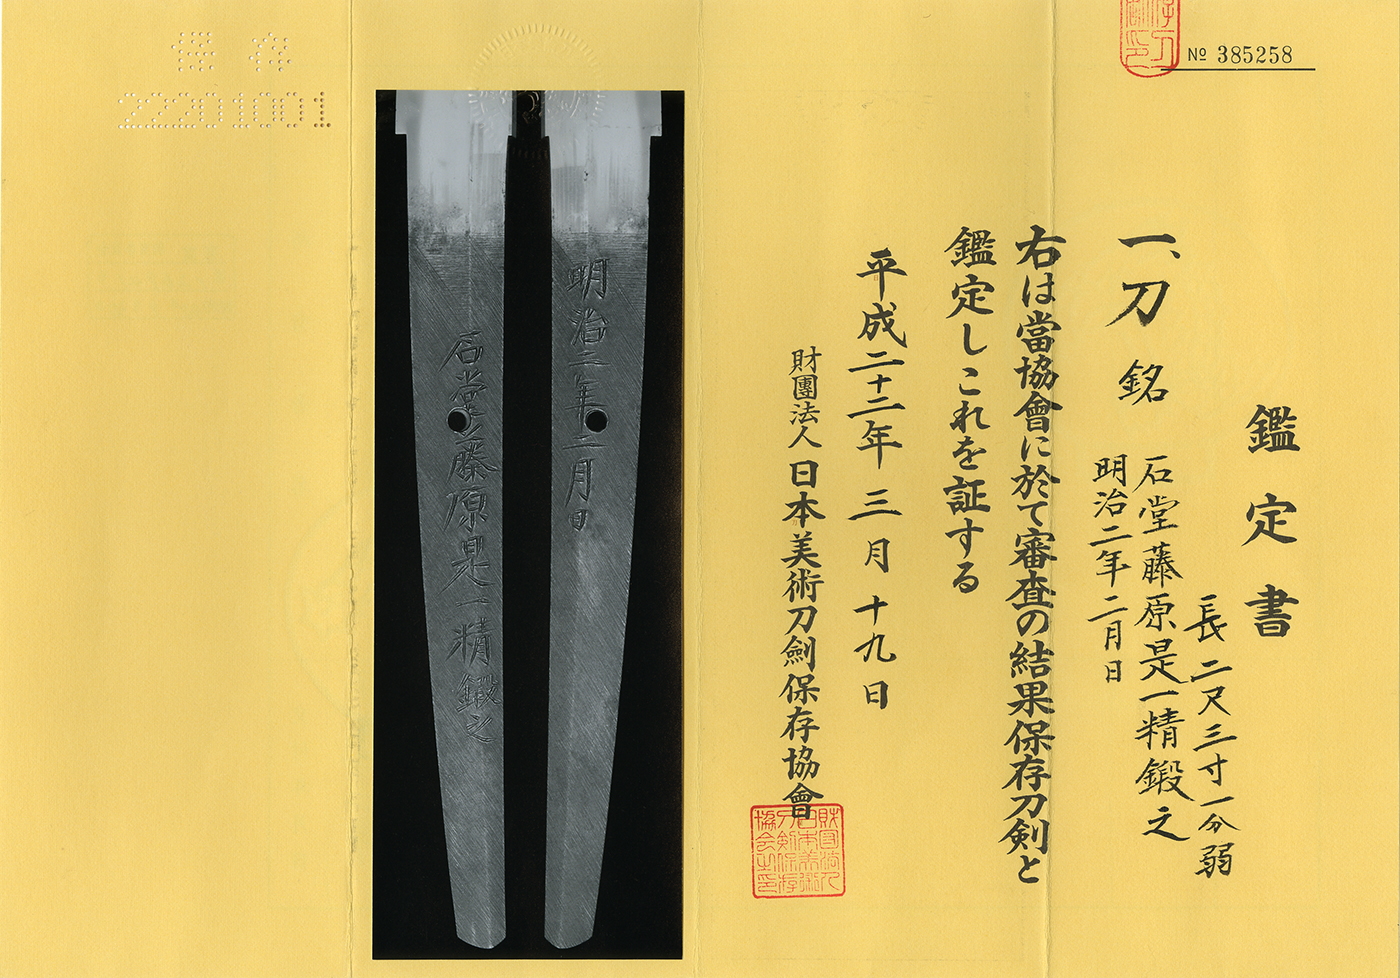 № 385258
鑑定書
一、刀 銘
長二尺三寸一分弱
石堂藤原是一精鍛之
明治二年二月日
右は當協會に於て審査の結果保存刀剣と
鑑定しこれを証する
平成二十二年三月十九日
財團法人日本美術刀劍保存協會
財団法人
日本美術
刀剣保存
協会之印
明治二年二月日
石堂藤原是一精鍛之
保存
22201001